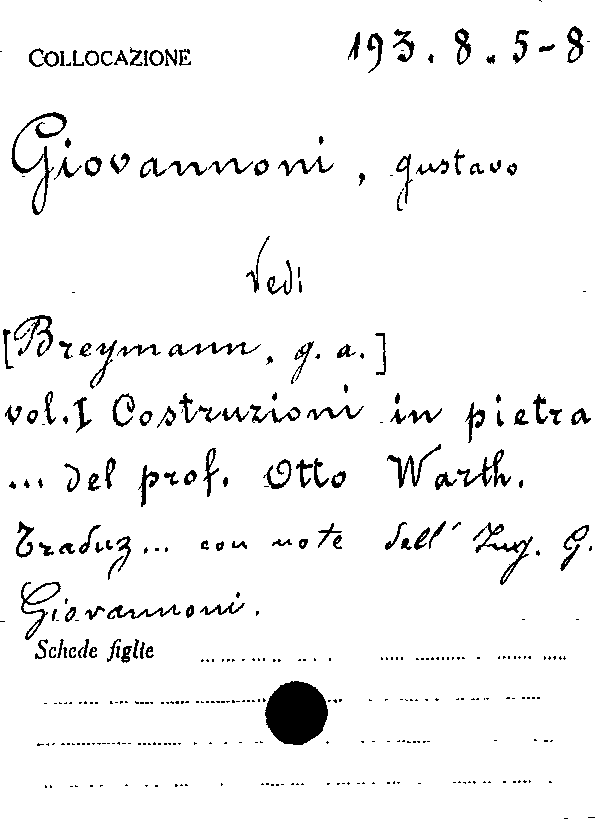 COLLOCAZIONE 193.8.5-8
Giovannoni, Gustavo
Vedi
[Breymann, G. A.]
vol. I Costruzioni in pietra
... del prof. Otto Warth.
Traduz... con note dell' Ing. G.
Giovannoni.
Schede figlie